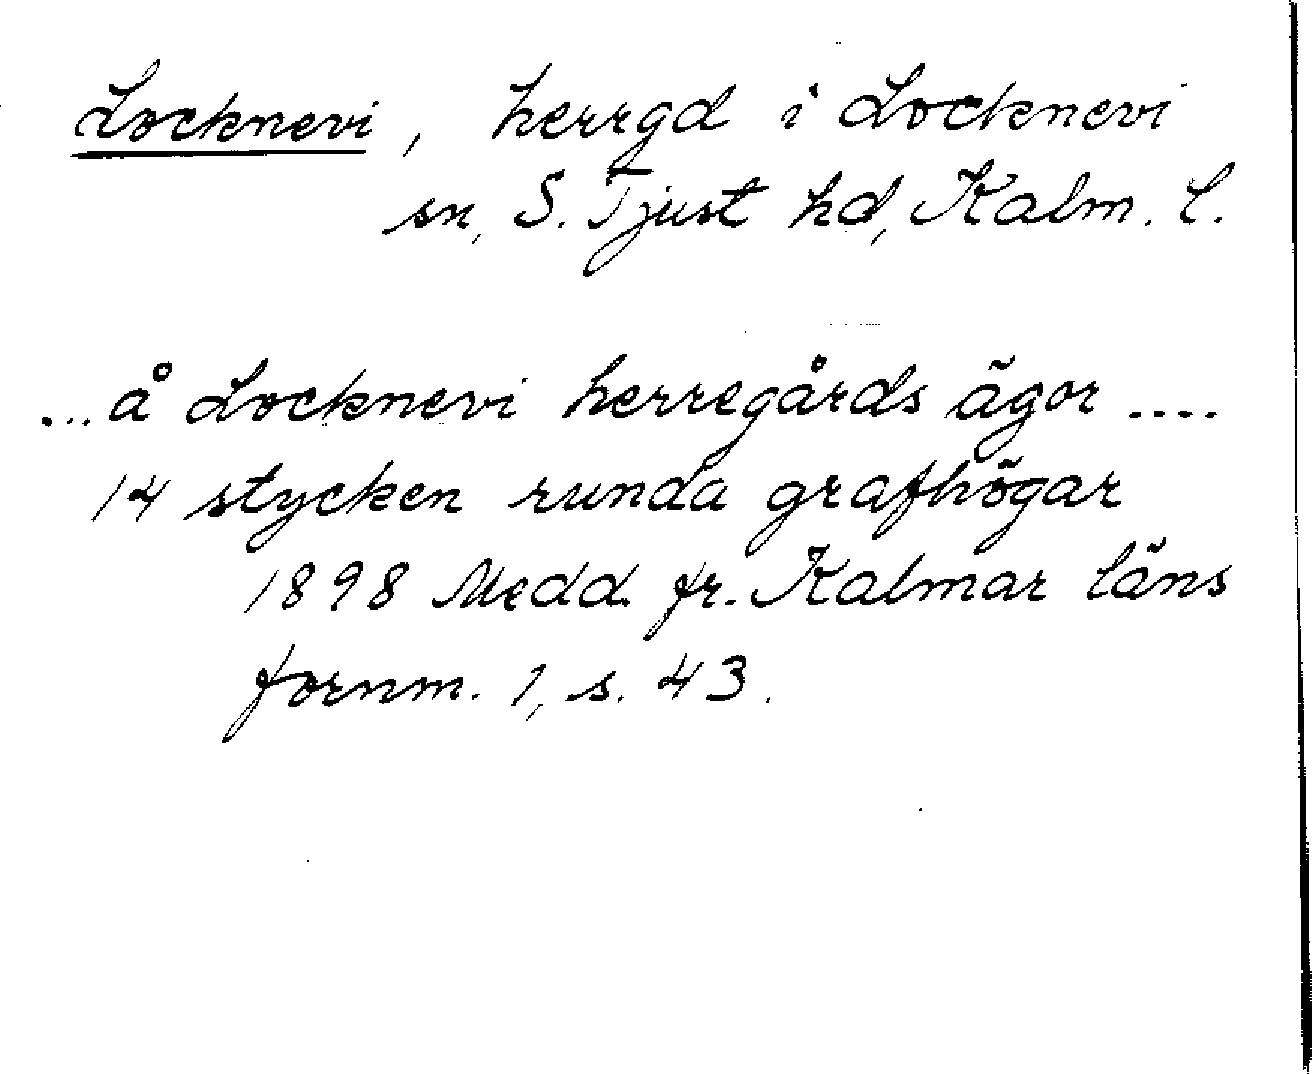 Locknevi, herrgd i Locknevi
sn, S. Tjust hd, Kalm. l.
...å Locknevi herregårds ägor ....
14 stycken runda grafhögar
1898 Medd. fr. Kalmar läns
fornm. 1, s. 43.